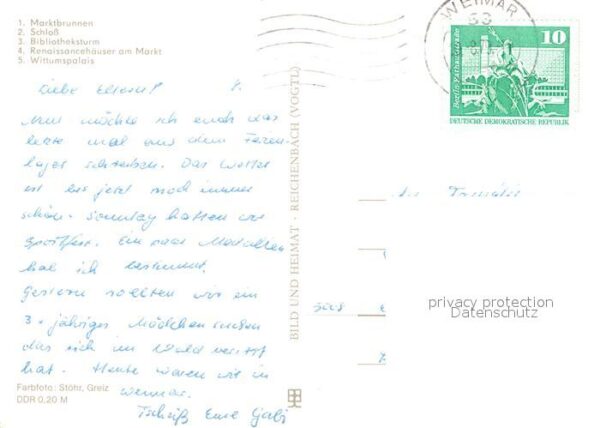 1. Marktbrunnen
2. Schloß
3. Bibliotheksturm
4. Renaissancehäuser am Markt
5. Wittumspalais
WEIMAR
10
Berlin, Rathausstraße
DEUTSCHE DEMOKRATISCHE REPUBLIK
Liebe Eltern!
Nun möchte ich euch das
letzte mal aus dem Ferien-
lager schreiben. Das Wetter
ist bis jetzt noch immer
schön. Sonntag hatten wir
Sportfest. Ein paar Medaillen
hab ich bestimmt.
Gestern sollten wir ein
3-jähriges Mädchen suchen
das sich im Wald verirrt
hat. Heute waren wir in
Weimar.
Tschüß Eure Gabi
BILD UND HEIMAT · REICHENBACH (VOGTL)
Familie
privacy protection
Datenschutz
Farbfoto: Stöhr, Greiz
DDR 0,20 M